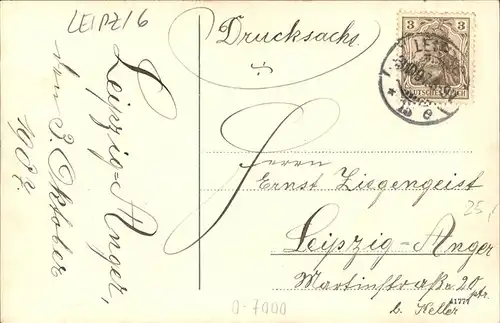 LEIPZIG
Leipzig-Anger,
den 3. Oktober
1907.
Drucksache
3
DEUTSCHES REICH
Herrn
Ernst Ziegengeist
Leipzig-Anger
Martinstraße 20 ptr.
b. Keller
41777
25,
0-7000